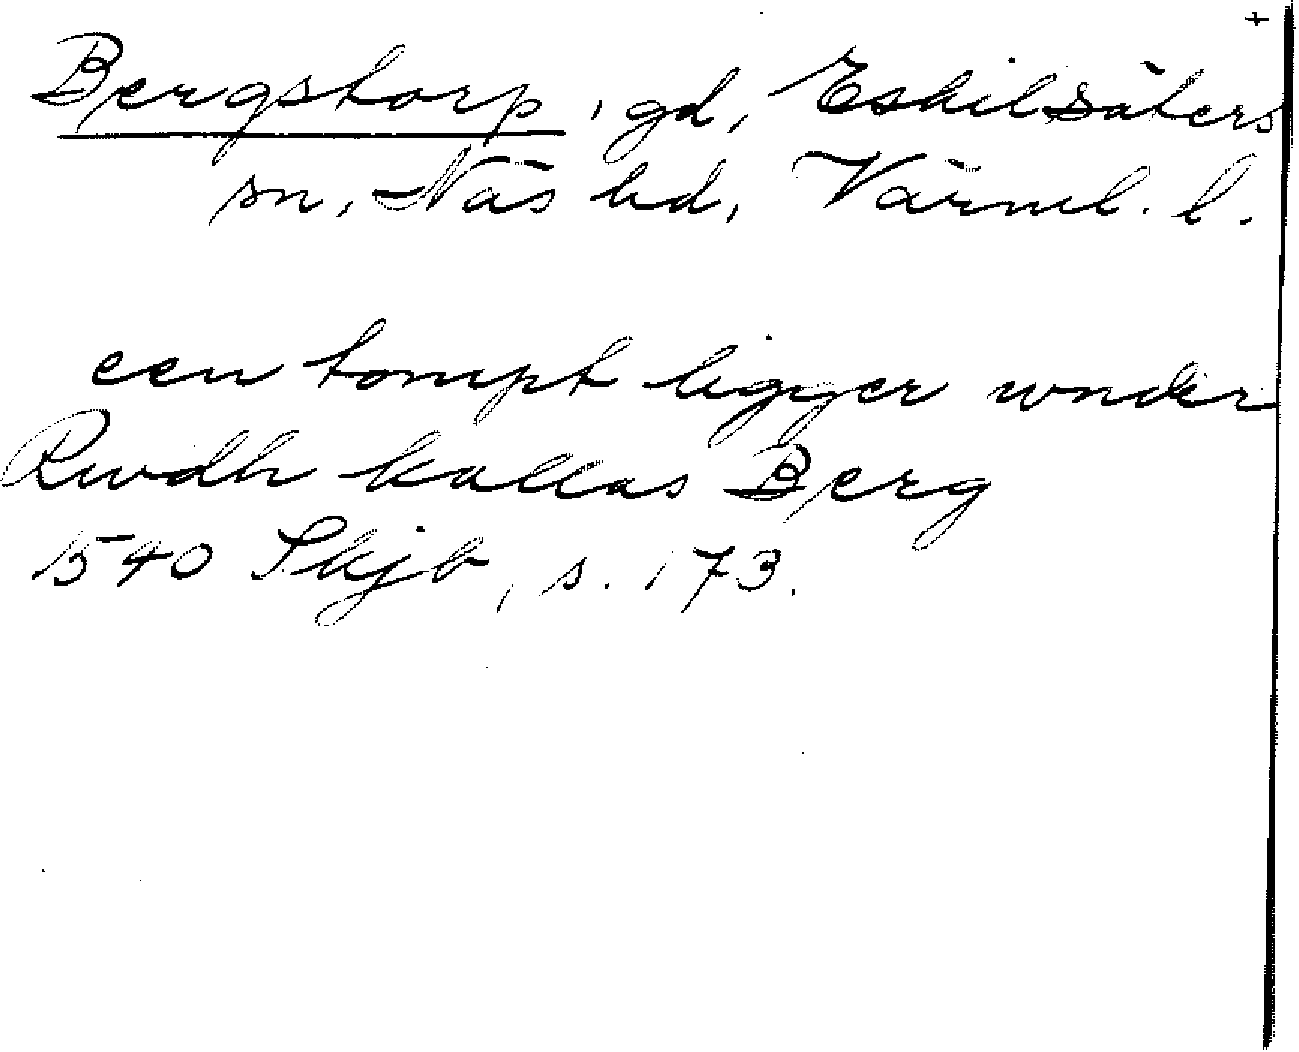 +
Bergstorp, gd, Eskilsäters
sn, Näs hd, Värml. l.
een tompt ligger wnder
Rwdh kallas Berg
1540 Skjb, s. 173.